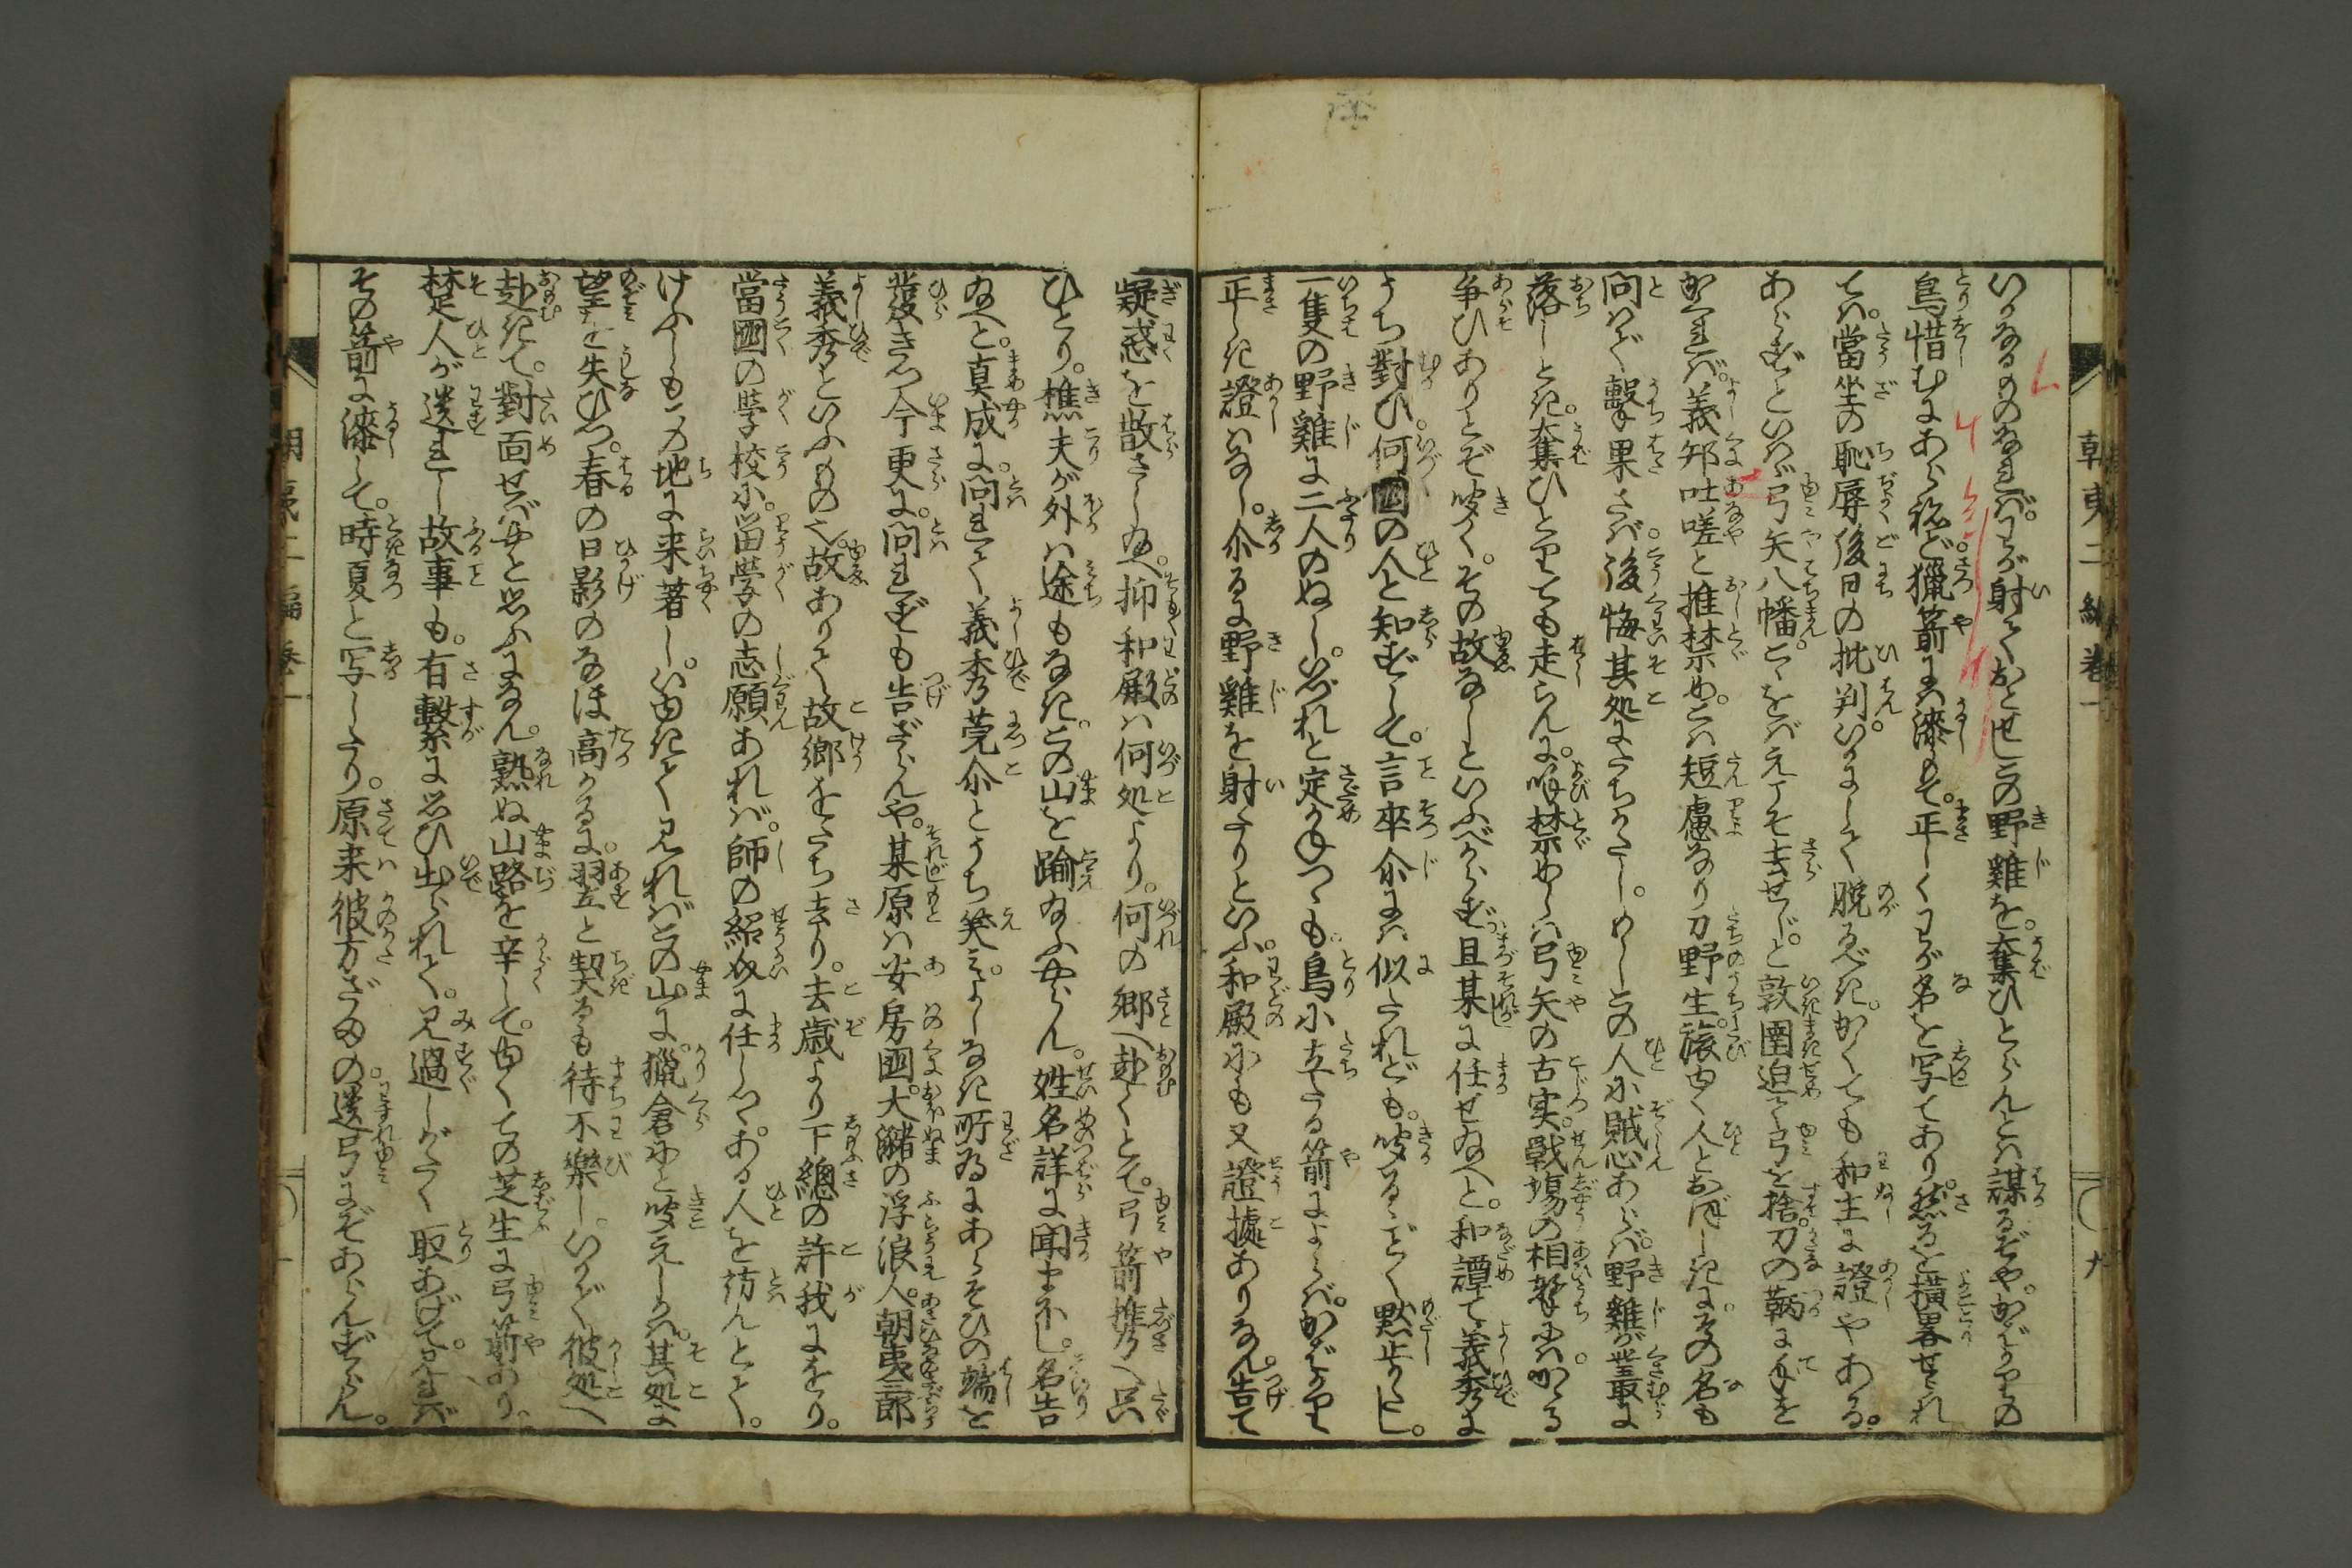 いかなるものなれば。わが射ておとせしこの野雞を。奪ひとらんとは謀るぞや。かばかりの
鳥惜むにあらねど。獵箭には漆もて。正しくわが名を写てあり。然るを横畧せられ
ては。當坐の恥辱後日の批判。いかにして脱るべき。かくても和主に證やある。
あらずといはゞ弓矢八幡。こゝをばえこそ去せじ。と敦圉迫て弓を捨。刀の鞆に手を
かくれば。義邦吐嗟と推禁め。こは短慮なり刀野生。旅ゆく人とおぼしきに。その名も
問はで撃果さば。後悔其処にたちがたし。もしこの人に賊心あらば。野雞が叢に
落しとき。奪ひとりても走らんに。呼禁めしは弓矢の古実。戦場の相撃には。かゝる
争ひありとぞ聞く。その故なしといふべからず。且某に任せ給へと。和譚て義秀に
うち對ひ。何國の人と知らずして。言卒尓には似たれども。聞るゝごとく黙止がたし。
一隻の野雞に二人のぬし。いづれと定めかねつゝも。鳥に立たる箭によらば。かばかり
正しき證はなし。尓るに野雞を射たりといふ。和殿にも又證據ありなん。告て
疑惑を散らさし給へ。抑和殿は何処より。何の郷へ赴くとて。弓箭携へ只
ひとり。樵夫が外は途もなき。この山を踰給ふやらん。姓名詳に聞まほし。名告
給へと。真成に。問れて義秀莞尓とうち笑み。よしなき所為にあらそひの端を
發きつ今更に。問れずも告ざらんや。某原は安房國。大瀦の浮浪人。朝夷三郎
義秀といふもの也。故ありて故郷をたち去り。去歳より下總の許我にをり。
當國の學校に。留學の志願あれば。師の紹介に任しつゝ。ある人を訪んとて。
けふしもこの地に来著し。いゆきて見ればこの山に。獵倉ありと聞えしかば。其処に
望を失ひつ。春の日影のなほ高かるに。翌と契るも待不樂し。いかで彼処へ
赴きて。對面せばやと思ふになん。熟ぬ山路を辛くして。ゆくての芝生に弓箭あり。
楚人が遺れし故事も。有繋に思ひ出られて。見過しがたく取あげて。見れば
その箭に漆して。時夏と写したり。原来彼方ざまの。遺弓にぞあらんずらん。
朝夷二編巻一
九
朝夷二編巻一